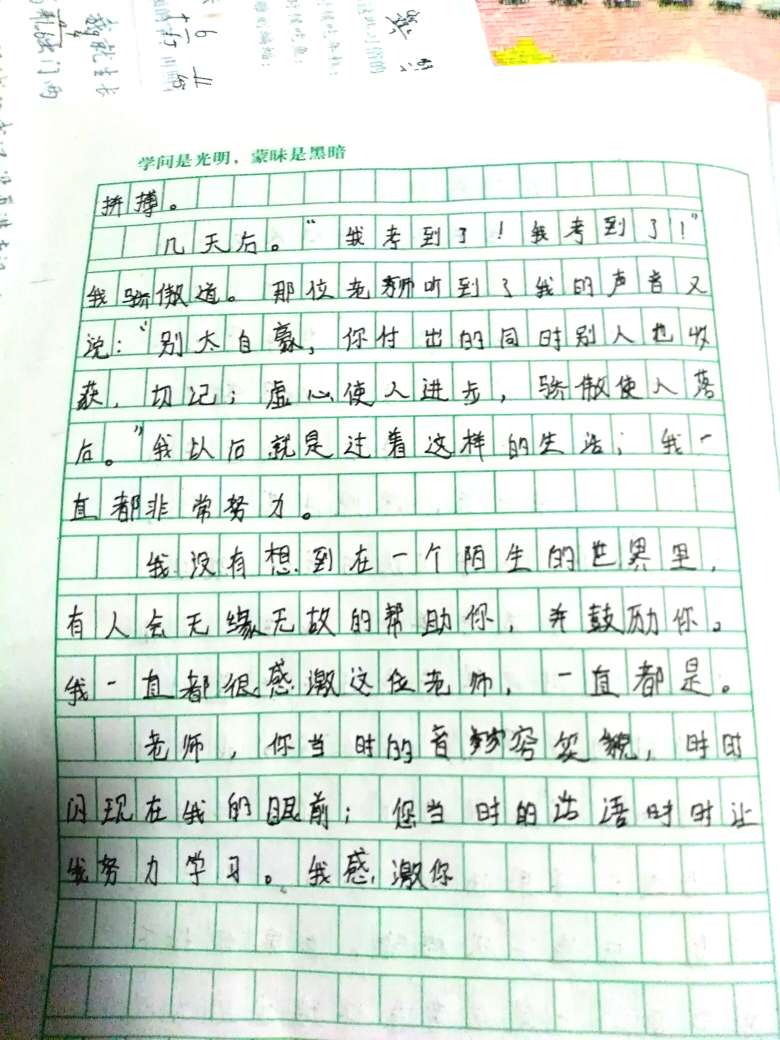 学问是光明，蒙昧是黑暗
拼搏。
几天后。“我考到了！我考到了！”
我骄傲道。那位老师听到了我的声音又
说：“别太自豪，你付出的同时别人也收
获，切记；虚心使人进步，骄傲使人落
后。”我以后就是过着这样的生活；我一
直都非常努力。
我没有想到在一个陌生的世界里，
有人会无缘无故的帮助你，并鼓励你。
我一直都很感激这位老师，一直都是。
老师，你当时的音容笑貌，时时
闪现在我的眼前；您当时的话语时时让
我努力学习。我感激你